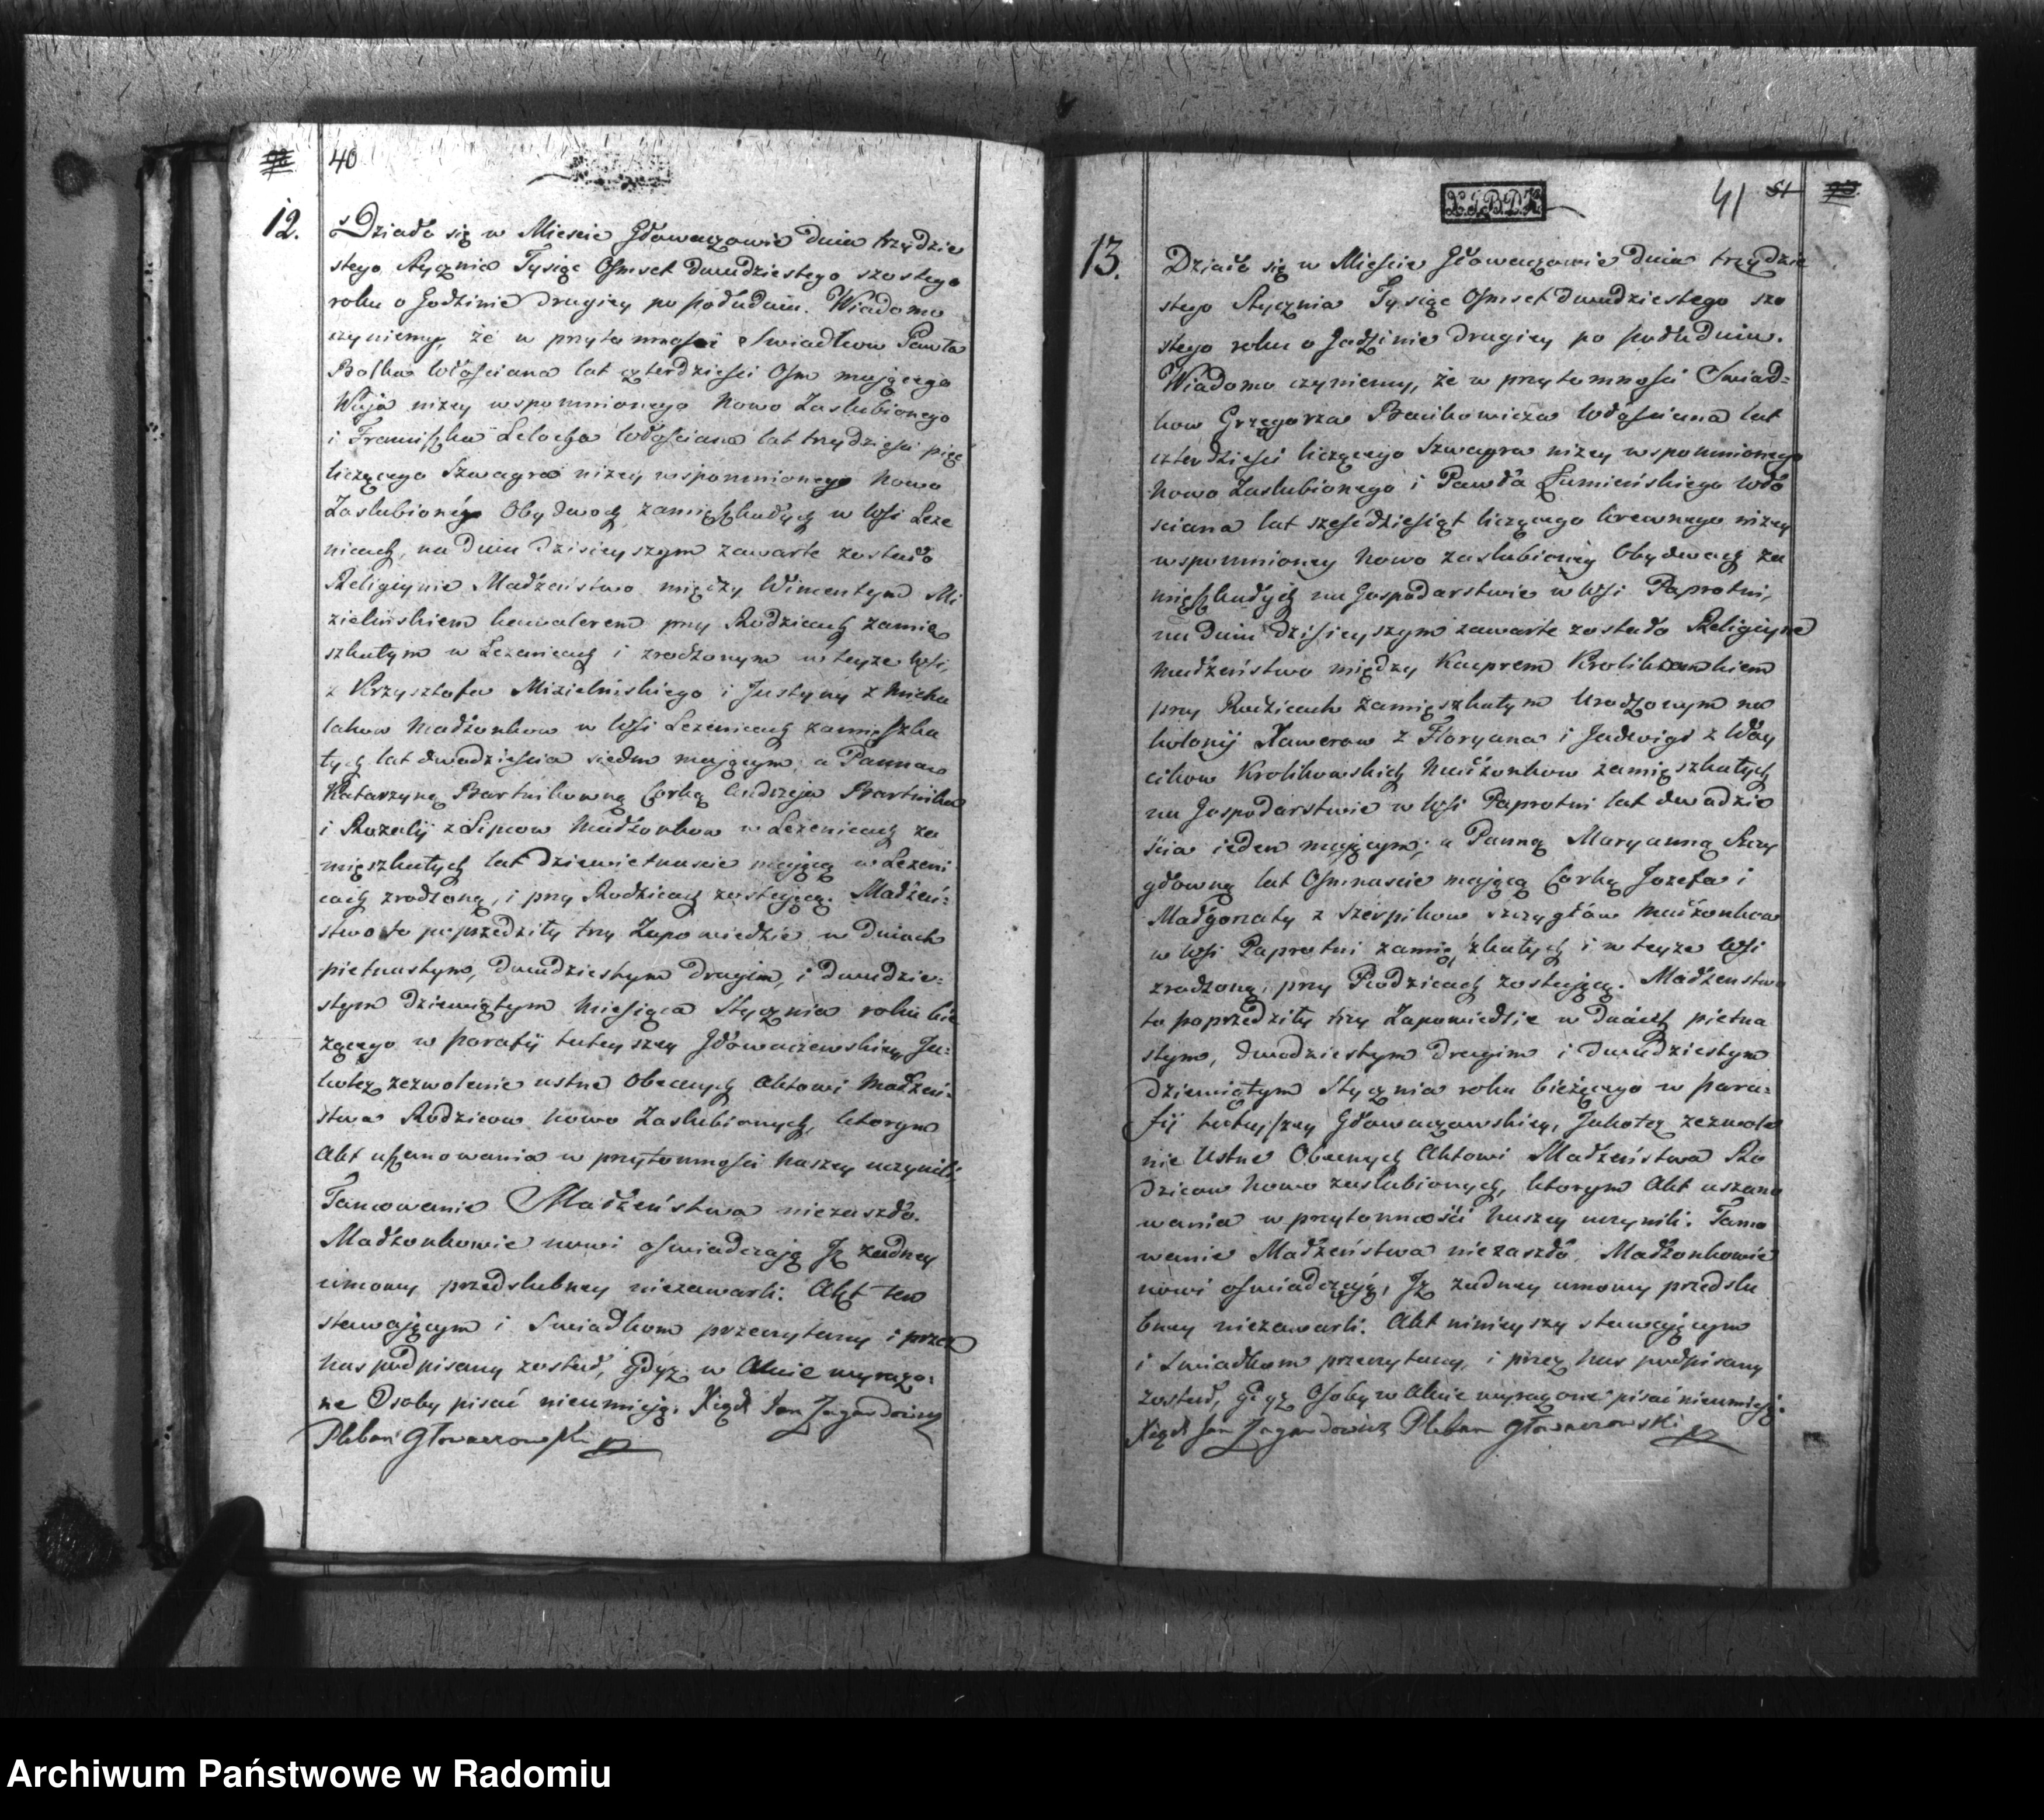 40
12.
Działo się w Miescie Głowaczowie dnia trzydzie
stego Stycznia Tysiąc Osmset dwudziestego szostego
roku o Godzinie drugiey po południu. Wiadomo
czyniemy, że w przytomności Swiadkow Pawła
Bolka Włościana lat czterdzieści Osm maiącego
Wuja niżey wspomnionego Nowo Zaslubionego
i Franciszka Włościana lat trzydzieści pięć
liczącego Szwagra niżey wspomnionego Nowo
Zaslubionego Obydwoch zamięszkałych w Wsi Leże
nicach, na dniu dzisieyszym zawarte zostało
Religiynie Małżeństwo między Wincentym Mi
zielińskiem kawalerem przy Rodzicach zamię
szkałym w Leżenicach i zrodzonym w teyże Wsi,
z Krzysztofa Mizielińskiego i Justyny z Micha
lakow Małżonkow w Wsi Leżenicach zamięszka
łych lat dwadzieścia siedm maiącym; a Panną
Katarzyną Bartnikowną Corką Andrzeja Bartnika
i Rozalij z Lipcow Małżonkow w Leżenicach za
mięszkałych lat dziewietnascie maiącą w Leżeni
cach zrodzoną, i przy Rodzicach zostaiącą. Małżeń-
stwo to poprzedziły trzy Zapowiedzie w Dniach
pietnastym, dwudziestym drugim, i dwudzie-
stym dziewiątym Miesiąca Stycznia roku bie
żącego w parafij tuteyszey Głowaczewskiey, Ja-
kotez zezwolenie ustne Obecnych Aktowi Małżeń-
stwa Rodzicow Nowo Zaslubionych, ktorym
Akt uszanowania w przytomności Naszey uczynili.
Tamowanie Małżeństwa niezaszło.
Małżonkowie nowi oświadczaią Jż żadney
umowy przedslubney niezawarli. Akt ten
stawaiącym i Swiadkom przeczytany i przez
Nas podpisany został, gdyż w Akcie wyrażo-
ne Osoby pisać nieumieją. Xiądz Jan Zagardowicz
Pleban Głowaczowski
41 51
13.
Działo się w Mieście Głowaczowie dnia trzydzie
stego Stycznia Tysiąc Osmset dwudziestego szo
stego roku o Godzinie drugiey po południu.
Wiadomo czyniemy, że w przytomności Swiad-
kow Grzegorza Banikowicza Włościana lat
czterdzieści liczącego Szwagra niżey wspomnionego
Nowo Zaslubionego i Pawła Łumieńskiego Wło
ściana lat sześćdziesiąt liczącego krewnego niżey
wspomnioney Nowo zaslubioney Obydwoch za
mięszkałych na Gospodarstwie w Wsi Paprotni,
na dniu dzisieyszym zawarte zostało Religiyne
Małżeństwo między Kacprem Krolikowskiem
przy Rodzicach zamięszkałym Urodzonym na
kolonij Xawerow z Floryana i Jadwigi z Wóy
cikow Krolikowskich Małżonkow zamięszkałych
na Gospodarstwie w Wsi Paprotni lat dwadzie
ścia ieden maiącym; a Panną Maryanną Szczy
głowną lat Osmnascie maiącą Corką Jozefa i
Małgorzaty z Szerpikow Szczygłów Małżonkow
w Wsi Paprotni zamięszkałych i w teyże Wsi
zrodzoną, przy Rodzicach zostaiącą. Małżenstwo
to poprzedziły trzy Zapowiedzie w Dniach pietna
stym, dwudziestym drugim i dwudziestym
dziewiątym Stycznia roku bieżącego w para-
fij tuteyszey Głowaczowskiey, Jakotez zezwole
nie Ustne Obecnych Aktowi Małżeństwa Ro
dzicow Nowo zaslubionych, ktorym Akt uszano
wania w przytomności Naszey uczynili. Tamo
wanie Małżeństwa niezaszło. Małżonkowie
nowi oświadczaią, Jż żadney umowy przedslu
bney niezawarli. Akt ninieyszy stawaiącym
i Swiadkom przeczytany, i przez Nas podpisany
został, gdyż Osoby w Akcie wyrażone pisać nieumieją.
Xiądz Jan Zagardowicz Pleban Głowaczowski
Archiwum Państwowe w Radomiu